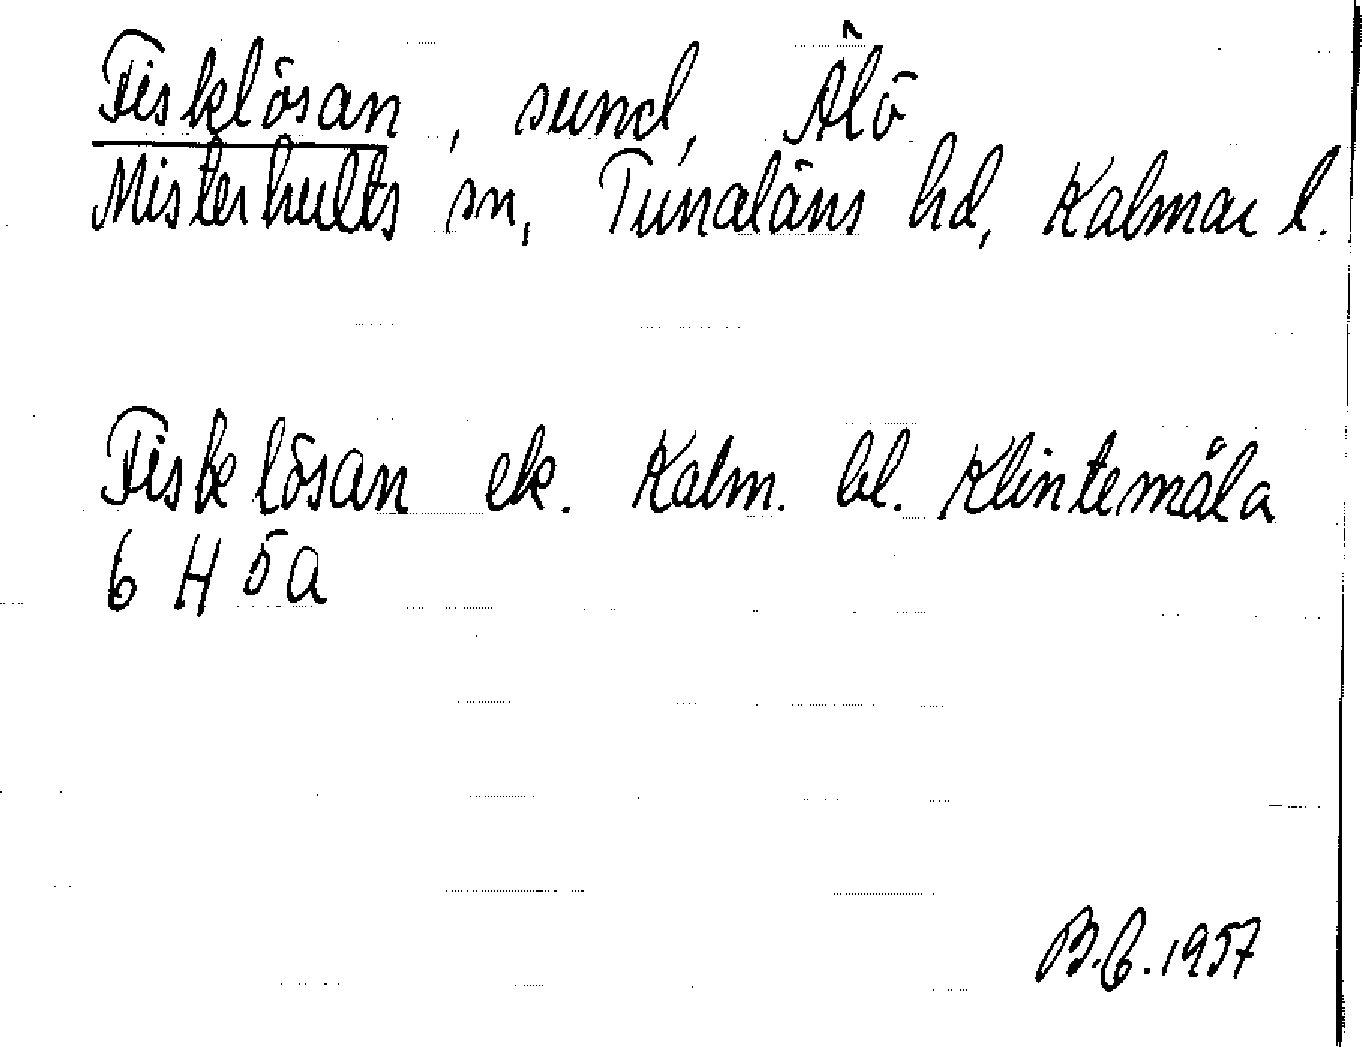 Fisklösan, sund, Ålö
Misterhults sn, Tunaläns hd, Kalmar l.
Fisklösan ek. Kalm. bl. Klintemåla
6 H 5a
B.G. 1957